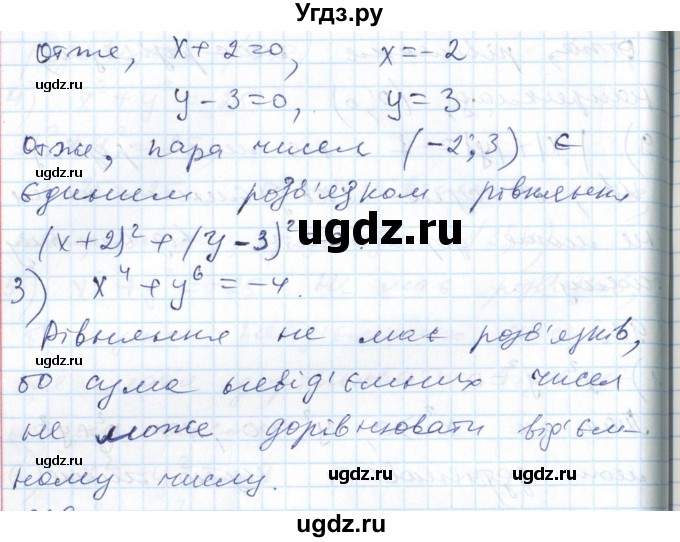 Угдз.ру
Отже, x + 2 = 0, x = -2
y - 3 = 0, y = 3.
Отже, пара чисел (-2; 3) є
єдиним розв'язком рівняння
(x + 2)² + (y - 3)² =
3) x⁴ + y⁶ = -4.
Рівняння не має розв'язків,
бо сума невід'ємних чисел
не може дорівнювати від'єм-
ному числу.
ugdz.ru
ugdz.ru
ugdz.ru
ugdz.ru
ugdz.ru
ugdz.ru
ugdz.ru
ugdz.ru
ugdz.ru
ugdz.ru
ugdz.ru